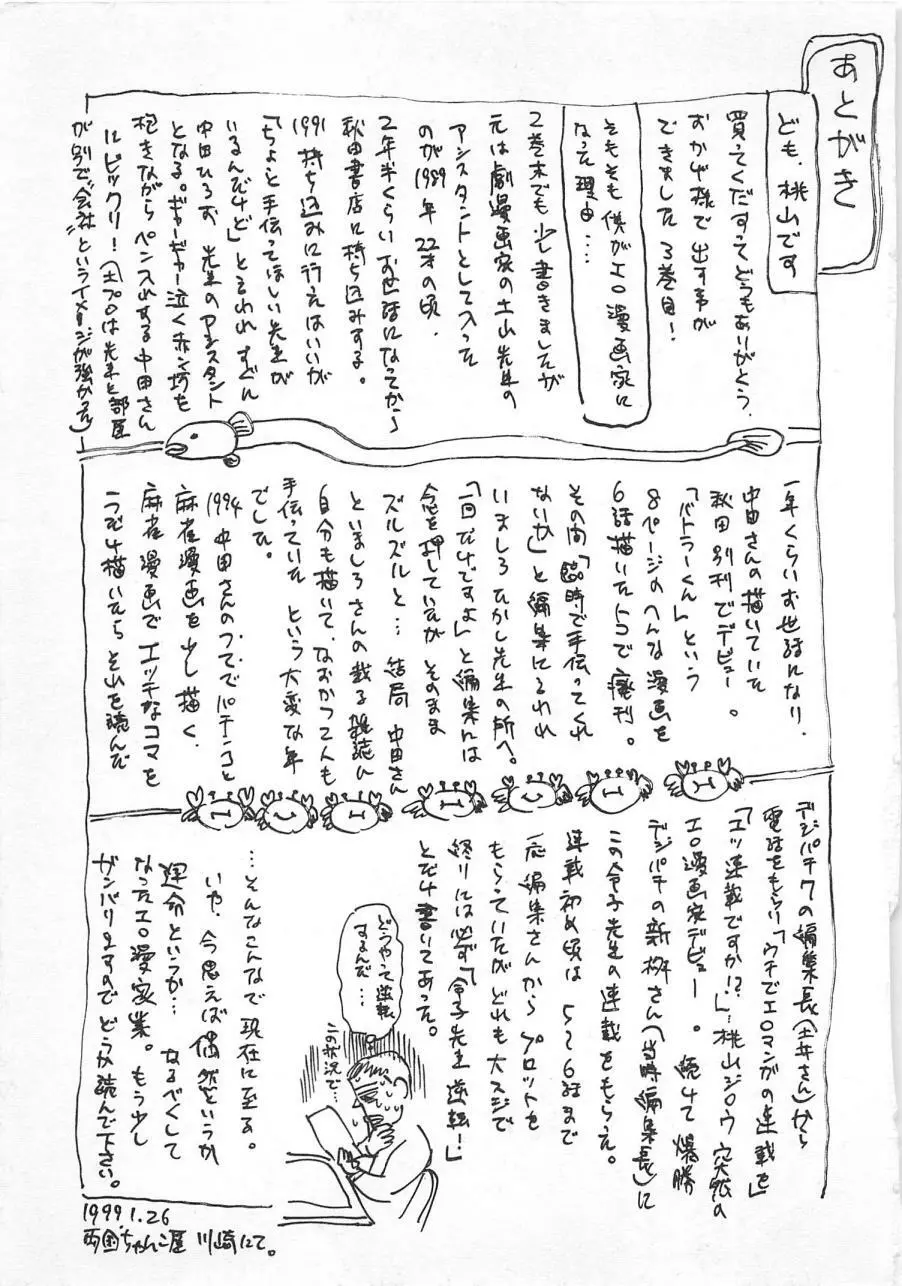 あとがき
ども、桃山です
買ってくだすってどうもありがとう。
おかげ様で出す事が
できました3巻目!
そもそも僕がエロ漫画家に
なった理由・・・
2巻末でも少し書きましたが
元は劇漫画家の土山先生の
アシスタントとして入った
のが1989年 22才の頃。
2年半くらいお世話になってから
秋田書店に持ち込みする。
1991 持ち込みに行ったはいいが
「ちょっと手伝ってほしい先生が
いるんだけど」と言われ すぐに
中田ひろお 先生のアシスタント
となる。ギャーギャー泣く赤ん坊を
抱きながらペン入れする中田さん
にビックリ!(土プロは先生と部屋
が別で“会社”というイメージが強かった)
一年くらいお世話になり、
中田さんの描いていた
秋田 別刊でデビュー。
「バトラーくん」という
8ページのへんな漫画を
6話描いたトコで廃刊。
その間「臨時で手伝ってくれ
ないか」と編集に言われ
いましろたかし先生の所へ。
「一回だけですよ」と編集には
念を押していたが そのまま
ズルズルと… 結局 中田さん
といましろさんの載る雑誌に
自分も描いて、なおかつ2人も
手伝っていた という大変な年
でした。
1994 中田さんのつてでパチンコと
麻雀漫画を少し描く。
麻雀漫画でエッチなコマを
1つだけ描いたら それを読んだ
デジパチ7の編集長(土井さん)から
電話をもらい「ウチでエロマンガの連載を」
「エッ連載ですか!?」…桃山ジロウ 突然の
エロ漫画家デビュー。続けて 爆勝
デジパチの新桝さん(当時編集長)に
この令子先生の連載をもらった。
連載初め頃は 5〜6話まで
一応編集さんから プロットを
もらっていたが どれも大スジで
終りには必ず「令子先生逆転!」
とだけ書いてあった。
どうやって逆転
するんだ…
この状況で…
…そんなこんなで現在に至る。
いや、今思えば偶然というか
運命というか… なるべくして
なったエロ漫画家業。もう少し
ガンバリますので どうか読んで下さい。
1999.1.26
両国ちゃんこ屋 川崎にて。